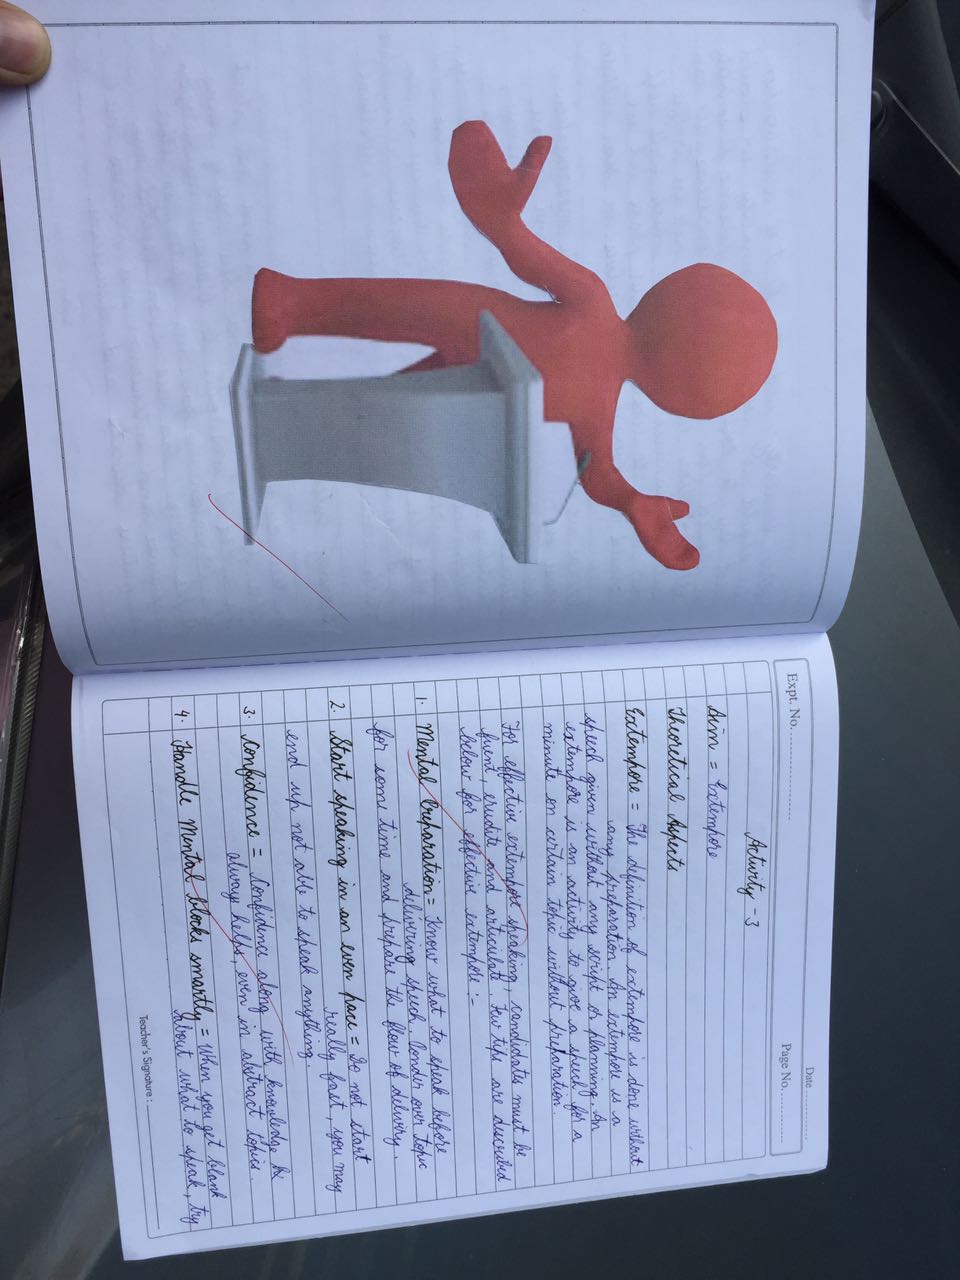 Date ............
Expt. No. ....................
Page No. ............
Activity - 3
Aim = Extempore
Theoretical Aspects
Extempore = The definition of extempore is done without
any preparation. An extempore is a
speech given without any script or planning. An
extempore is an activity to give a speech for a
minute on certain topic without preparation.
For effective extempore speaking, candidates must be
fuent, erudite and articulate. Few tips are described
below for effective extempore :-
1. Mental Preparation = Know what to speak before
delivering speech. Ponder over topic
for some time and prepare the flow of delivery.
2. Start speaking in an even pace = Do not start
really fast, you may
end up not able to speak anything.
3. Confidence = Confidence along with knowledge
always helps, even in abstract topics.
4. Handle Mental blocks smartly = When you get blank
about what to speak, try
Teacher's Signature : ____________